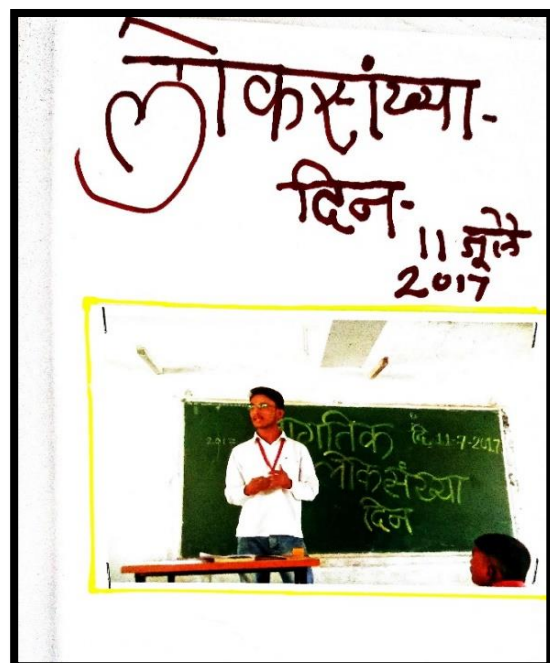 लोकसंख्या-
दिन-
11 जूलै
2017
जागतिक दि, 11-7-2017
लोकसंख्या
दिन